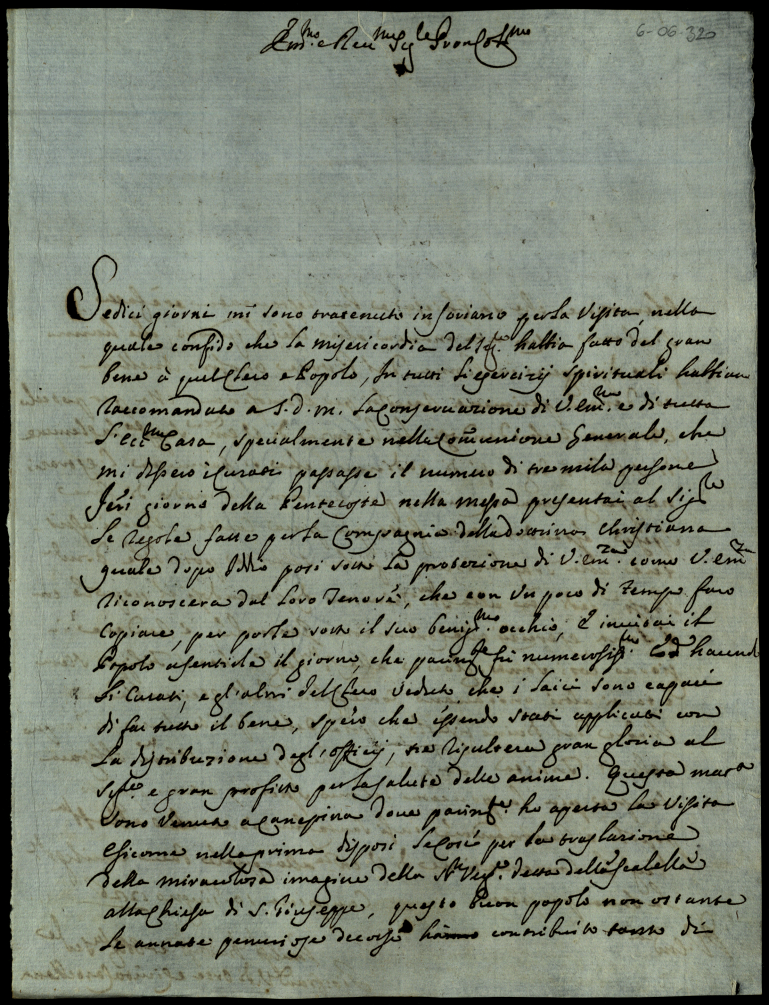 6-06-320
Em.mo e Rev.mo Sig.re Pron Col.mo
Sedici giorni mi sono tratenuto in Soriano per la Visita, nella
quale confido che la misericordia del Sig.re habbia fatto del gran
bene à quel Clero e Popolo, In tutti li esercizij spirituali habbiam
raccomandato a S. D. M. la Conservazione di V. Em.za e di tutta
S. Ecc.ma Casa, specialmente nella Comunione Generale, che
mi dissero i Curati passasse il numero di tre mila persone
Jeri giorno della Pentecoste nella messa presentai al Sig.re
le regole fatte per la Compagnia della dottrina Christiana
quale dopo Iddio posi sotto la protezione di V. Em.za come V. Em.za
riconoscerà dal loro Tenore, che con un poco di tempo farò
Copiare, per porle sotto il suo benig.mo occhio, E invitai il
Popolo a sentirle il giorno, che parim.te fù numerosiss.mo Et havendo
li Curati, e gl'altri del Clero veduto che i laici sono capaci
di far tutto il bene, spero che essendo stati applicati con
la distribuzione degl'officij, ne risulterà gran gloria al
Sig.re e gran profitto per la salute delle anime. Questa matt.a
sono venuto a Canepina dove parim.te ho aperta la Visita
E sicome nella prima disposi le Cose per la traslazione
della miracolosa imagine della S.ma Verg.e detta della Scalella
alla Chiesa di S. Giuseppe, questo buon popolo non ostante
le annate penuriose decorse contribuito tanto di